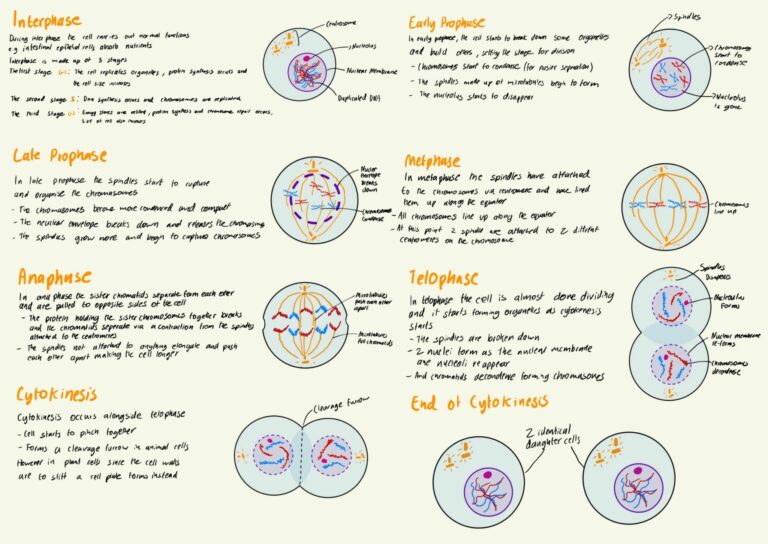 Interphase
During interphase the cell carries out normal functions
e.g intestinal epithelial cells absorb nutrients
Interphase is made up of 3 stages
The first stage G1: The cell replicates organelles, protein synthesis occurs and
the cell size increases
The second stage S: Dna synthesis occurs and chromosomes are replicated
The third stage G2: Energy stores are , protein synthesis and chromosome repair occurs,
size of cell also increases
Centrosome
Nucleolus
Nuclear Membrane
Duplicated DNA
Early Prophase
In early prophase, the cell starts to break down some organelles
and build others, setting the stage for division
- Chromosomes start to condense (for easier separation)
- The spindles made up of microtubules begin to form
- The nucleolus starts to disappear
Spindles
Chromosomes
start to
condense
Nucleolus
is gone
Late Prophase
In late prophase the spindles start to rupture
and organise the chromosomes
- The chromosomes become more condensed and compact
- The nuclear envelope breaks down and releases the chromosomes
- The spindles grow more and begin to capture chromosomes
Nuclear
envelope
breaks
down
Chromosomes
condense
Metphase
In metaphase the spindles have attatched
to the chromosomes via centromere and have lined
them up along the equator
- All chromosomes line up along the equator
- At this point 2 spindle are attatched to 2 diffrent
centromers on the chromosome
Chromosomes
line up
Anaphase
In anaphase the sister chromatids separate form each other
and are pulled to opposite sides of the cell
- The protein holding the sister chromosomes together breaks
and the chromatids seperate via a contraction from the spindles
attatched to the centromeres
- The spindles not attatched to anything elongate and push
each other apart making the cell longer
Microtubules
push each other
apart
Microtubules
Pull chromatids
Telophase
In telophase the cell is almost done dividing
and it starts forming organelles as cytokinesis
starts
- The spindles are broken down
- 2 nuclei form as the nuclear membrane
are nucleoli reappear
- And chromatids decondense forming chromosomes
Spindles
Disappears
Nucleolus
Forms
Nuclear membrane
re-forms
Chromosomes
decondense
Cytokinesis
Cytokinesis occurs alongside telophase
- Cell starts to pinch together
- Forms a cleavage furrow in animal cells
However in plant cells since the cell walls
are to stiff a cell plate forms instead
Cleavage furrow
End of Cytokinesis
2 identical
daughter cells